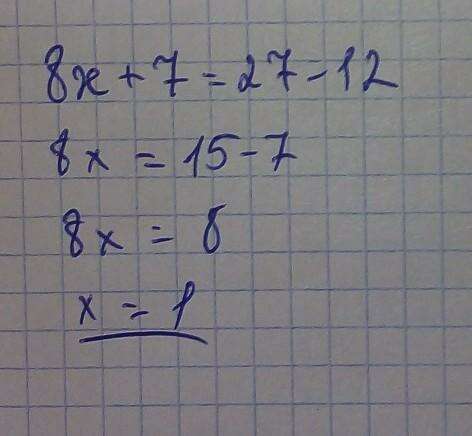 8x + 7 = 27 - 12
8x = 15 - 7
8x = 8
x = 1